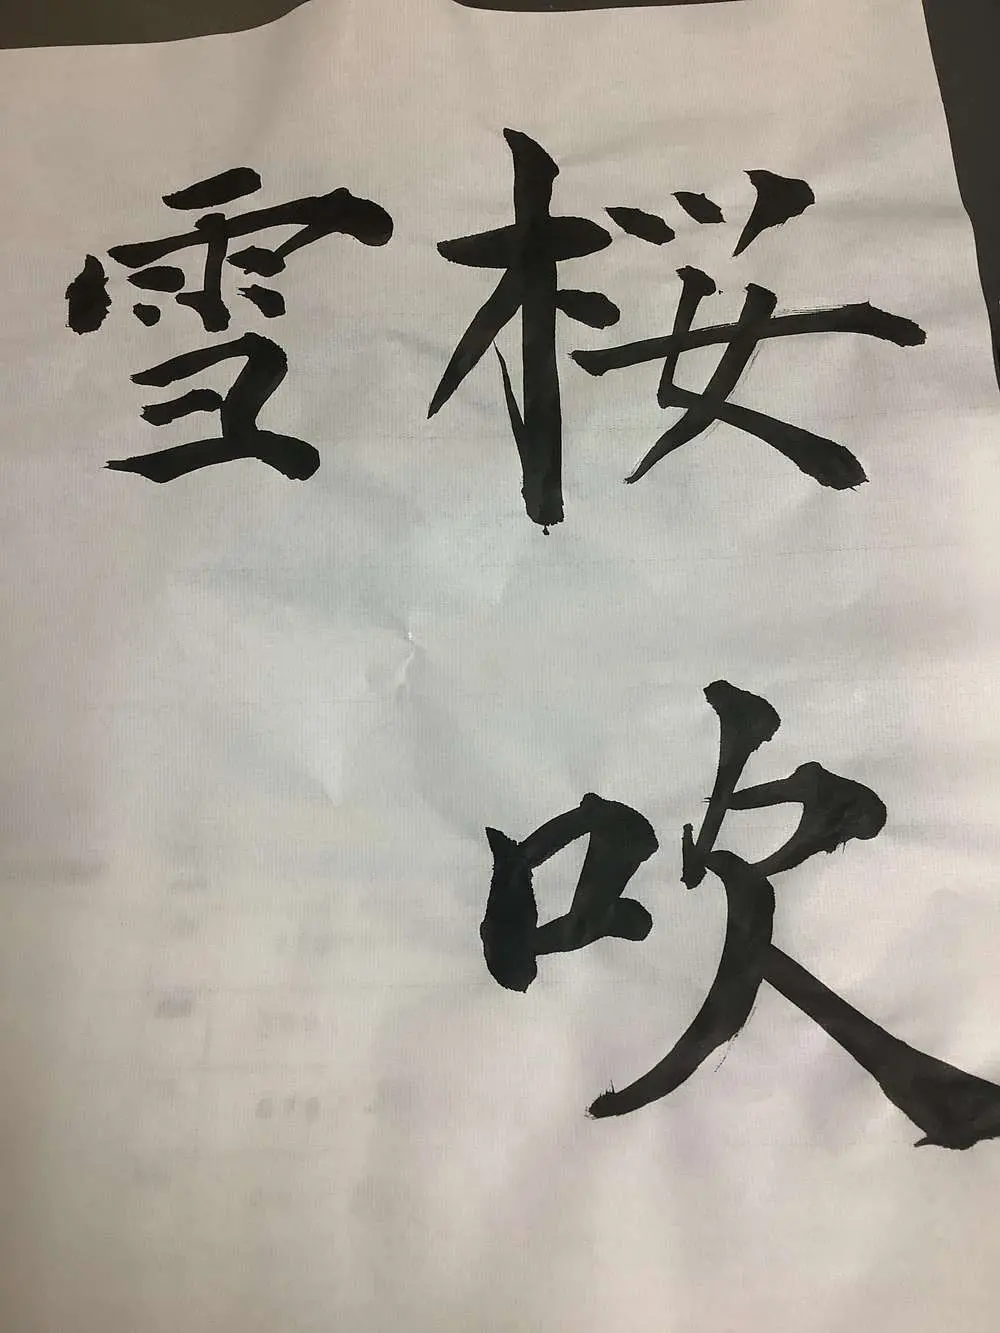 桜吹
雪